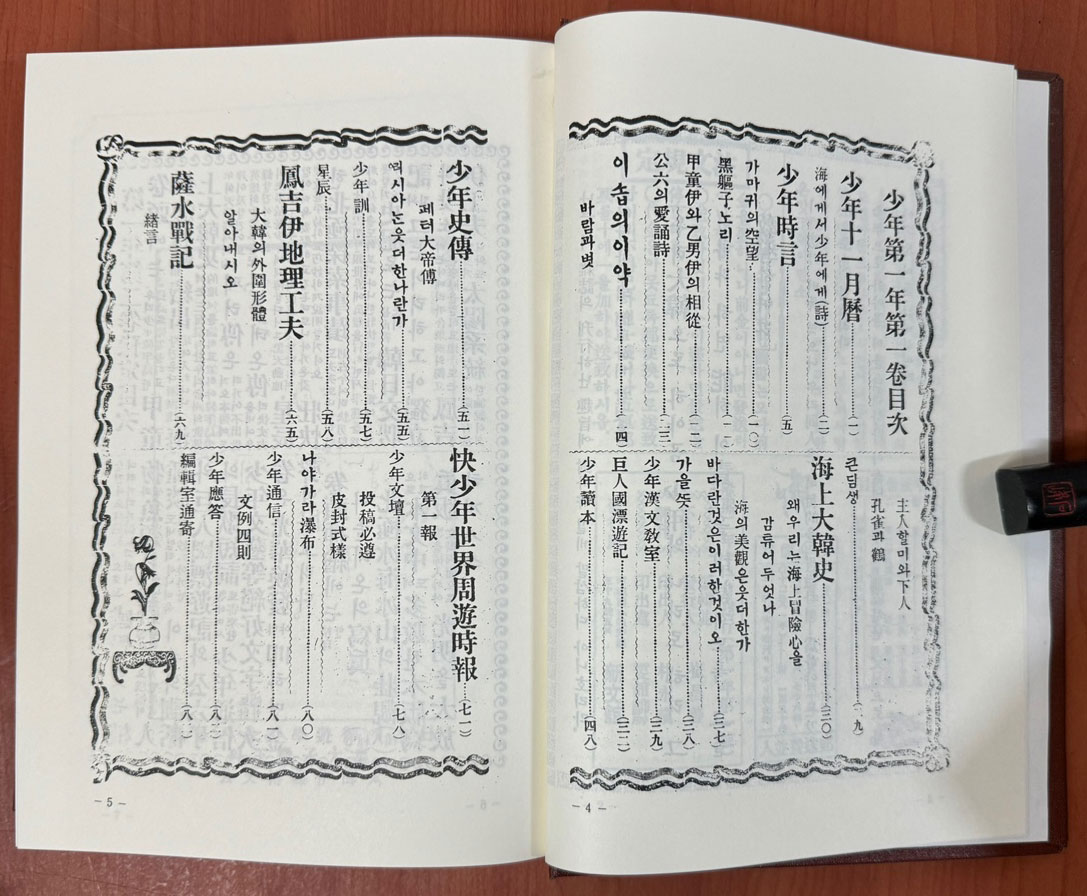 少年第一年第一卷目次
少年十一月曆……(一)
海에게서少年에게(詩)……(二)
少年時言……(五)
가마귀의空望……(一〇)
黑軀子노리……(一一)
甲童伊와乙男伊의相從……(一二)
公六의愛誦詩……(二三)
이솝의이약……(二四)
바람과볏
主人할미와下人
孔雀과鶴
큰딤생……(一九)
海上大韓史……(三〇)
왜우리는海上冒險心을
감튜어두엇나
海의美觀은웃더한가
바다란것은이러한것이오……(三七)
가을뜻……(三八)
少年漢文敎室……(三九)
巨人國漂遊記……(四二)
少年讀本……(四八)
— 4 —
少年史傳……(五一)
페터大帝傳
러시아는웃더한나란가……(五五)
少年訓……(五七)
星辰……(五八)
鳳吉伊地理工夫……(六五)
大韓의外圍形體
알아내시오
薩水戰記……(六九)
緖言
快少年世界周遊時報……(七一)
第一報
少年文壇……(七八)
投稿必遵
皮封式樣
나야가라瀑布……(八〇)
少年通信……(八一)
文例四則
少年應答……(八二)
編輯室通寄……(八二)
— 5 —